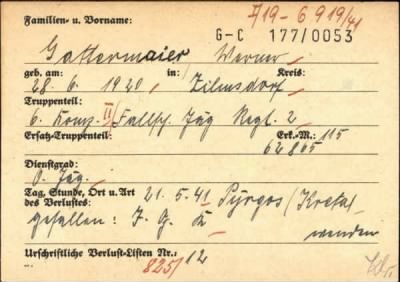 I/19 - 6919/41
Familien- u. Vorname:
G-C 177/0053
Gattermaier Werner
geb. am: in: Kreis:
28. 6. 1920 Zilmsdorf
Truppenteil:
6. Komp. II/Fallsch. Jäg Regt. 2
Ersatz-Truppenteil: Erk.-M.: 115
62865
Dienstgrad:
O. Jäg.
Tag, Stunde, Ort u. Art 21. 5. 41 Pyrgos/Kreta
des Verlustes:
gefallen: I. G. K
wenden
Urschriftliche Verlust-Listen Nr.: 12
825/